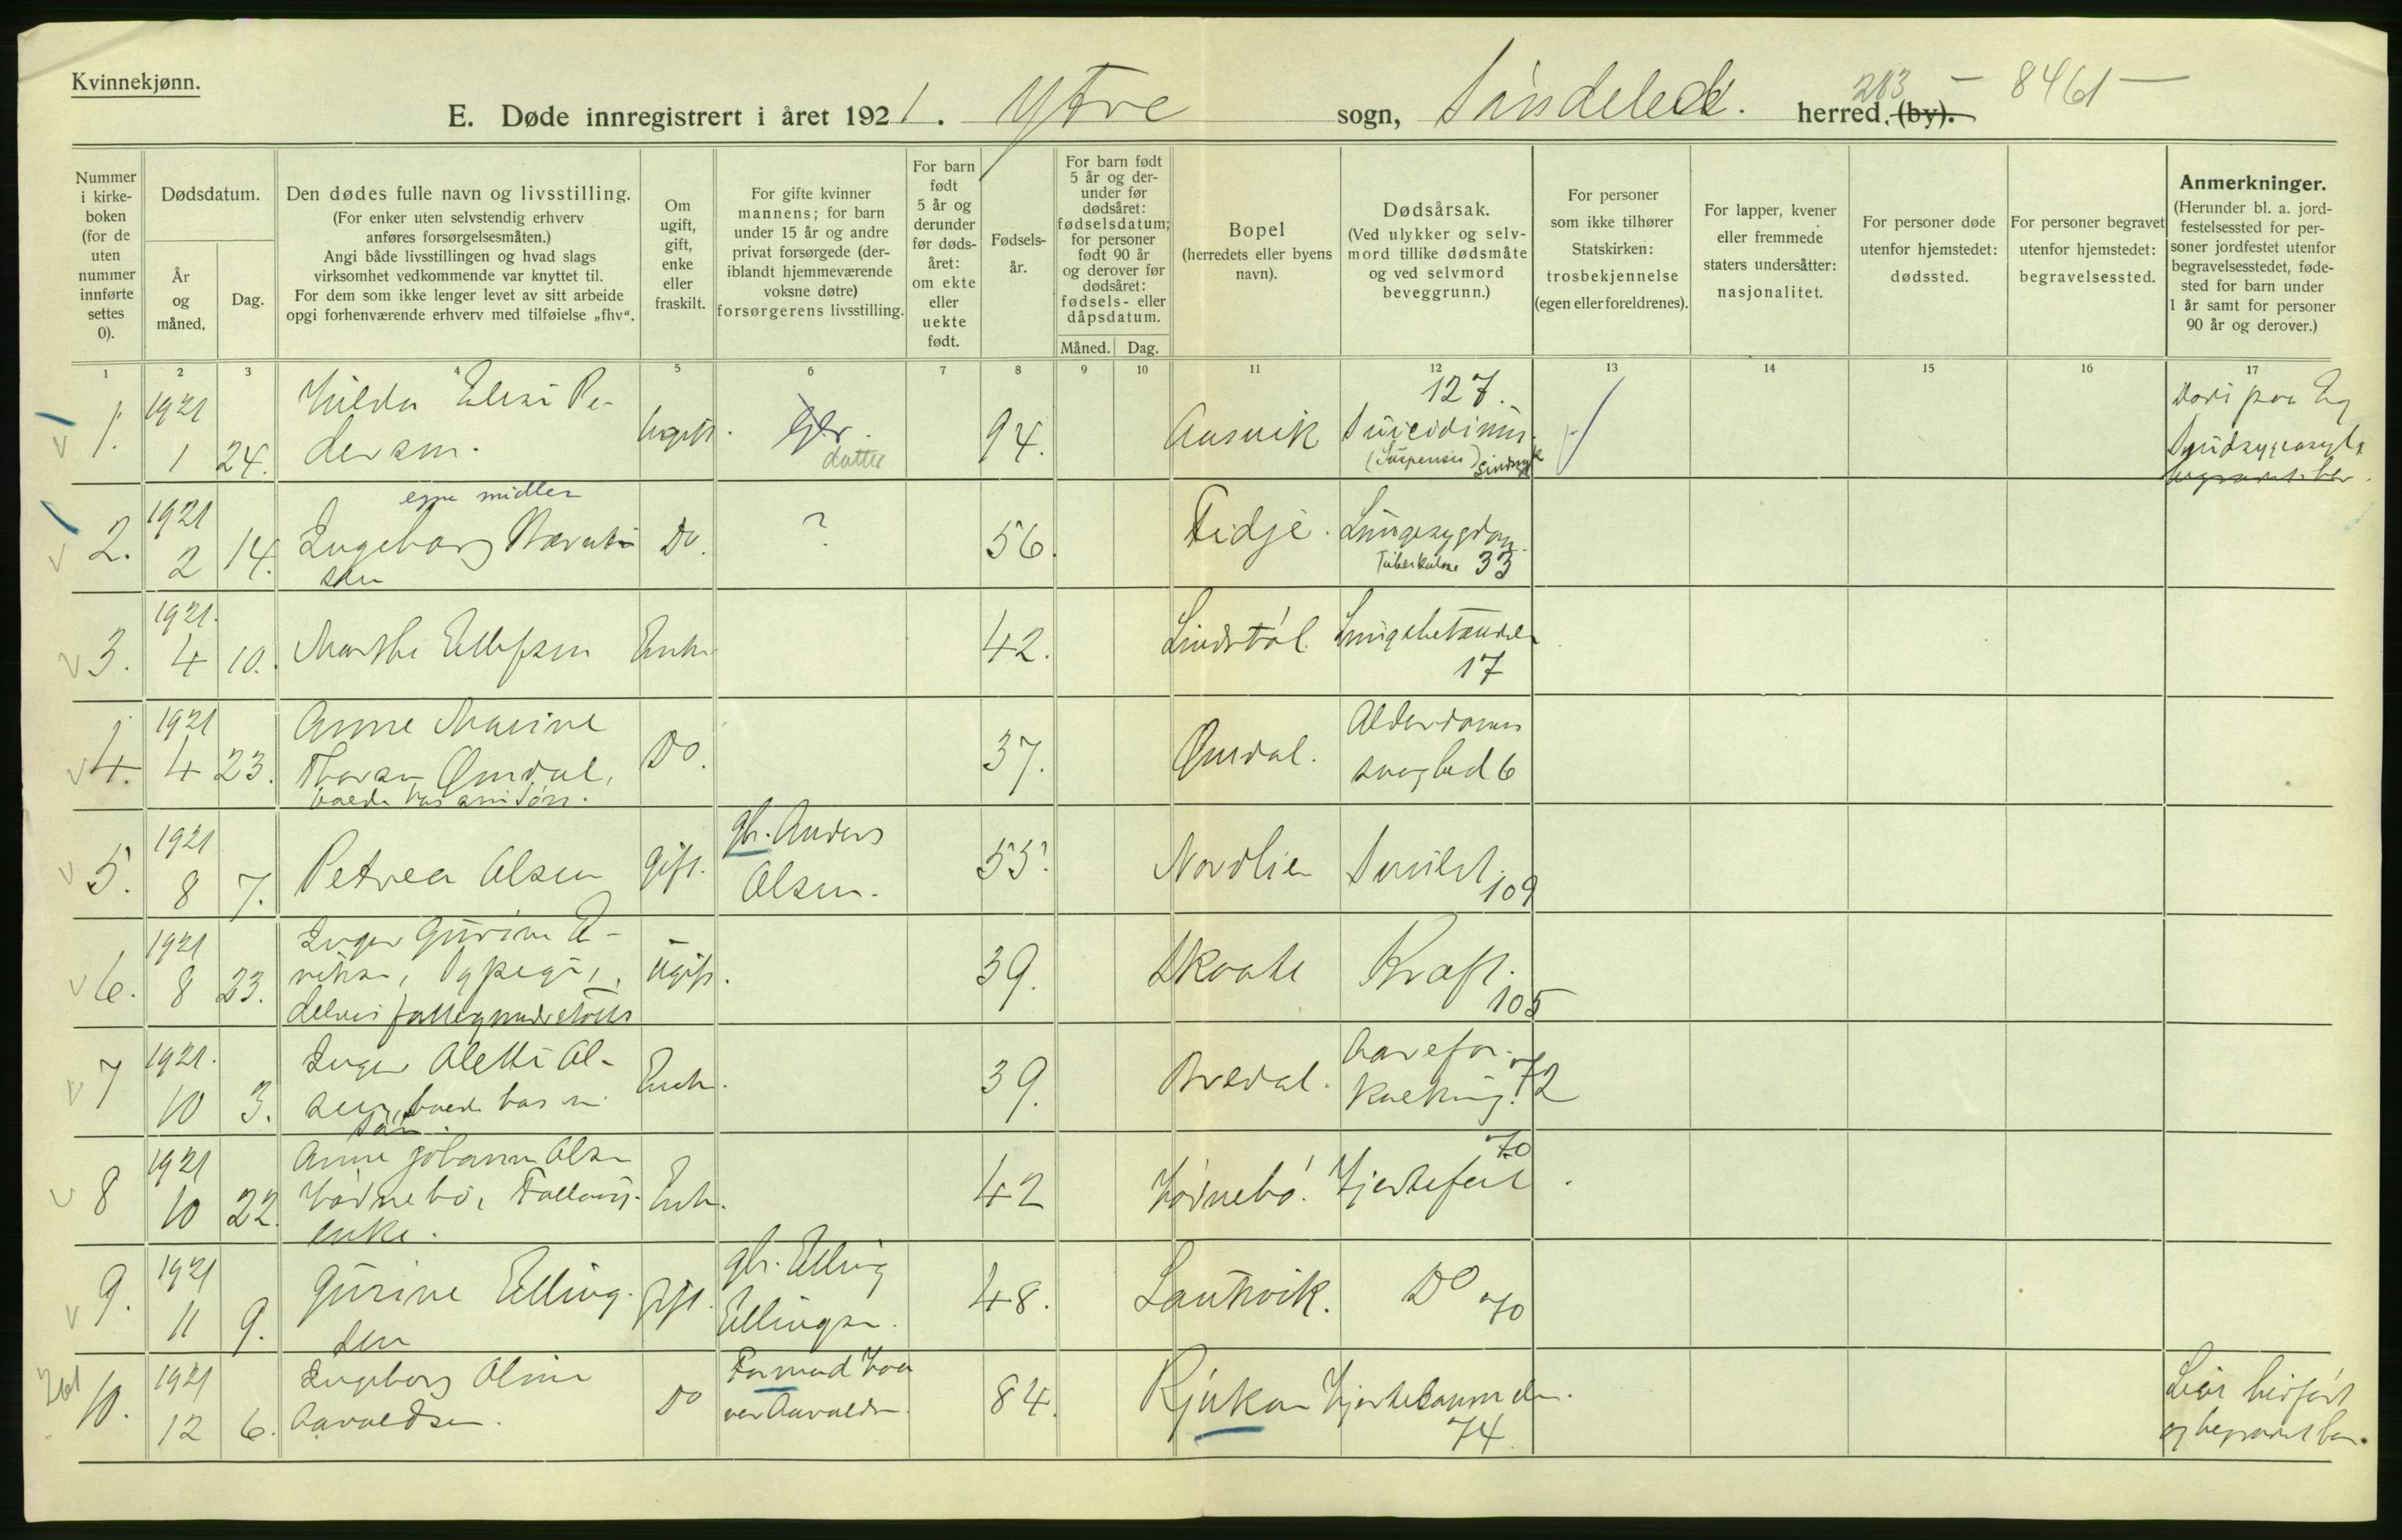 Kvinnekjønn.
E. Døde innregistrert i året 1921. Ytre sogn, Søndeled. herred. (by).
263 - 8461 -
Nummer i kirkeboken (for de uten nummer innførte settes 0).
Dødsdatum.
År og måned.
Dag.
Den dødes fulle navn og livsstilling.
(For enker uten selvstendig erhverv anføres forsørgelsesmåten.)
Angi både livsstillingen og hvad slags virksomhet vedkommende var knyttet til.
For dem som ikke lenger levet av sitt arbeide opgi forhenværende erhverv med tilføielse „fhv“.
Om ugift, gift, enke eller fraskilt.
For gifte kvinner mannens; for barn under 15 år og andre privat forsørgede (deriblandt hjemmeværende voksne døtre) forsørgerens livsstilling.
For barn født 5 år og derunder før dødsåret: om ekte eller uekte født.
Fødselsår.
For barn født 5 år og derunder før dødsåret: fødselsdatum; for personer født 90 år og derover før dødsåret: fødsels- eller dåpsdatum.
Måned. Dag.
Bopel (herredets eller byens navn).
Dødsårsak. (Ved ulykker og selvmord tillike dødsmåte og ved selvmord beveggrunn.)
For personer som ikke tilhører Statskirken: trosbekjennelse (egen eller foreldrenes).
For lapper, kvener eller fremmede staters undersåtter: nasjonalitet.
For personer døde utenfor hjemstedet: dødssted.
For personer begravet utenfor hjemstedet: begravelsessted.
Anmerkninger. (Herunder bl. a. jordfestelsessted for personer jordfestet utenfor begravelsesstedet, fødested for barn under 1 år samt for personer 90 år og derover.)
1 2 3 4 5 6 7 8 9 10 11 12 13 14 15 16 17
1. 1921 1 24. Hilda Elise Pedersen. Ugift. Gbr. datter 94. Ausvik 127. Suicidium. (Suspensio) Sindssyk
2. 1921 2 14. egne midler Ingeborg sen Do. ? 56. Fidje. Lungesygdom. Tuberkulose 33
3. 1921. 4 10. Marthe Ellefsen Enke 42. Lindstøl. Lungebetændelse 17
4. 1921 4 23. Anne Marine Thorsen Omdal, boede hos sin søn. Do. 37. Omdal. Alderdomssvaghed 6
5. 1921 8 7. Petrea Olsen gift. gbr. Anders Olsen. 55. Nordlien 109
6. 1921 8 23. Inger Gurine Eriksen, delvis fattigunderstøttet Ugift. 39. Skaate Kræft. 105
7 1921. 10 3. Inger Alette Olsen, boede hos sin søn. Enke. 39. Bredal. Aareforkalkning. 72
8 1921 10 22. Anne Johanne Olsen Hødnebø, enke. Enke. 42 Hødnebø. Hjertefeil 70
9. 1921 11 9. Gurine Ellingsen gift. gbr. Elling Ellingsen. 48. Lautvik. Do 70
261 10. 1921 12 6. Ingeborg Aavaldsen. Do Formand Aavaldsen. 84. Rjukan 74 herført og begravet her.